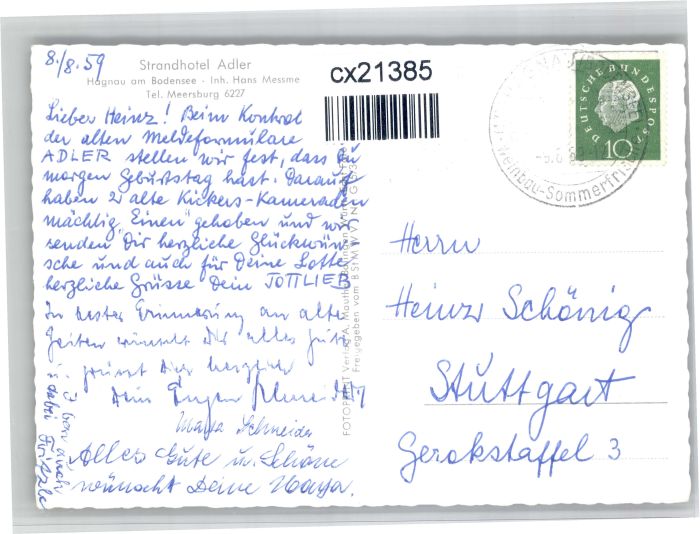 8./8.59
Strandhotel Adler
Hagnau am Bodensee - Inh. Hans Messme
Tel. Meersburg 6227
cx21385
Lieber Heinz! Beim Kontrol
der alten Meldeformulare
ADLER stellen wir fest, dass Du
morgen Geburtstag hast. Darauf
haben 2 alte Kickers-Kameraden
mächtig "Einen" gehoben und wir
senden Dir herzliche Glückwün-
sche und auch für Deine Lotte
herzliche Grüsse Dein JOTTLIEB
In bester Erinnerung an alte
Zeiten wünscht Dir alles Gute
grüsst Dich herzlich
Dein Eugen
Maria Schneider
Alles Gute u. Schöne
wünscht Deine
DEUTSCHE BUNDESPOST
10
Weinbau-Sommerfri
Herrn
Heinz Schönig
Stuttgart
Gerokstaffel 3